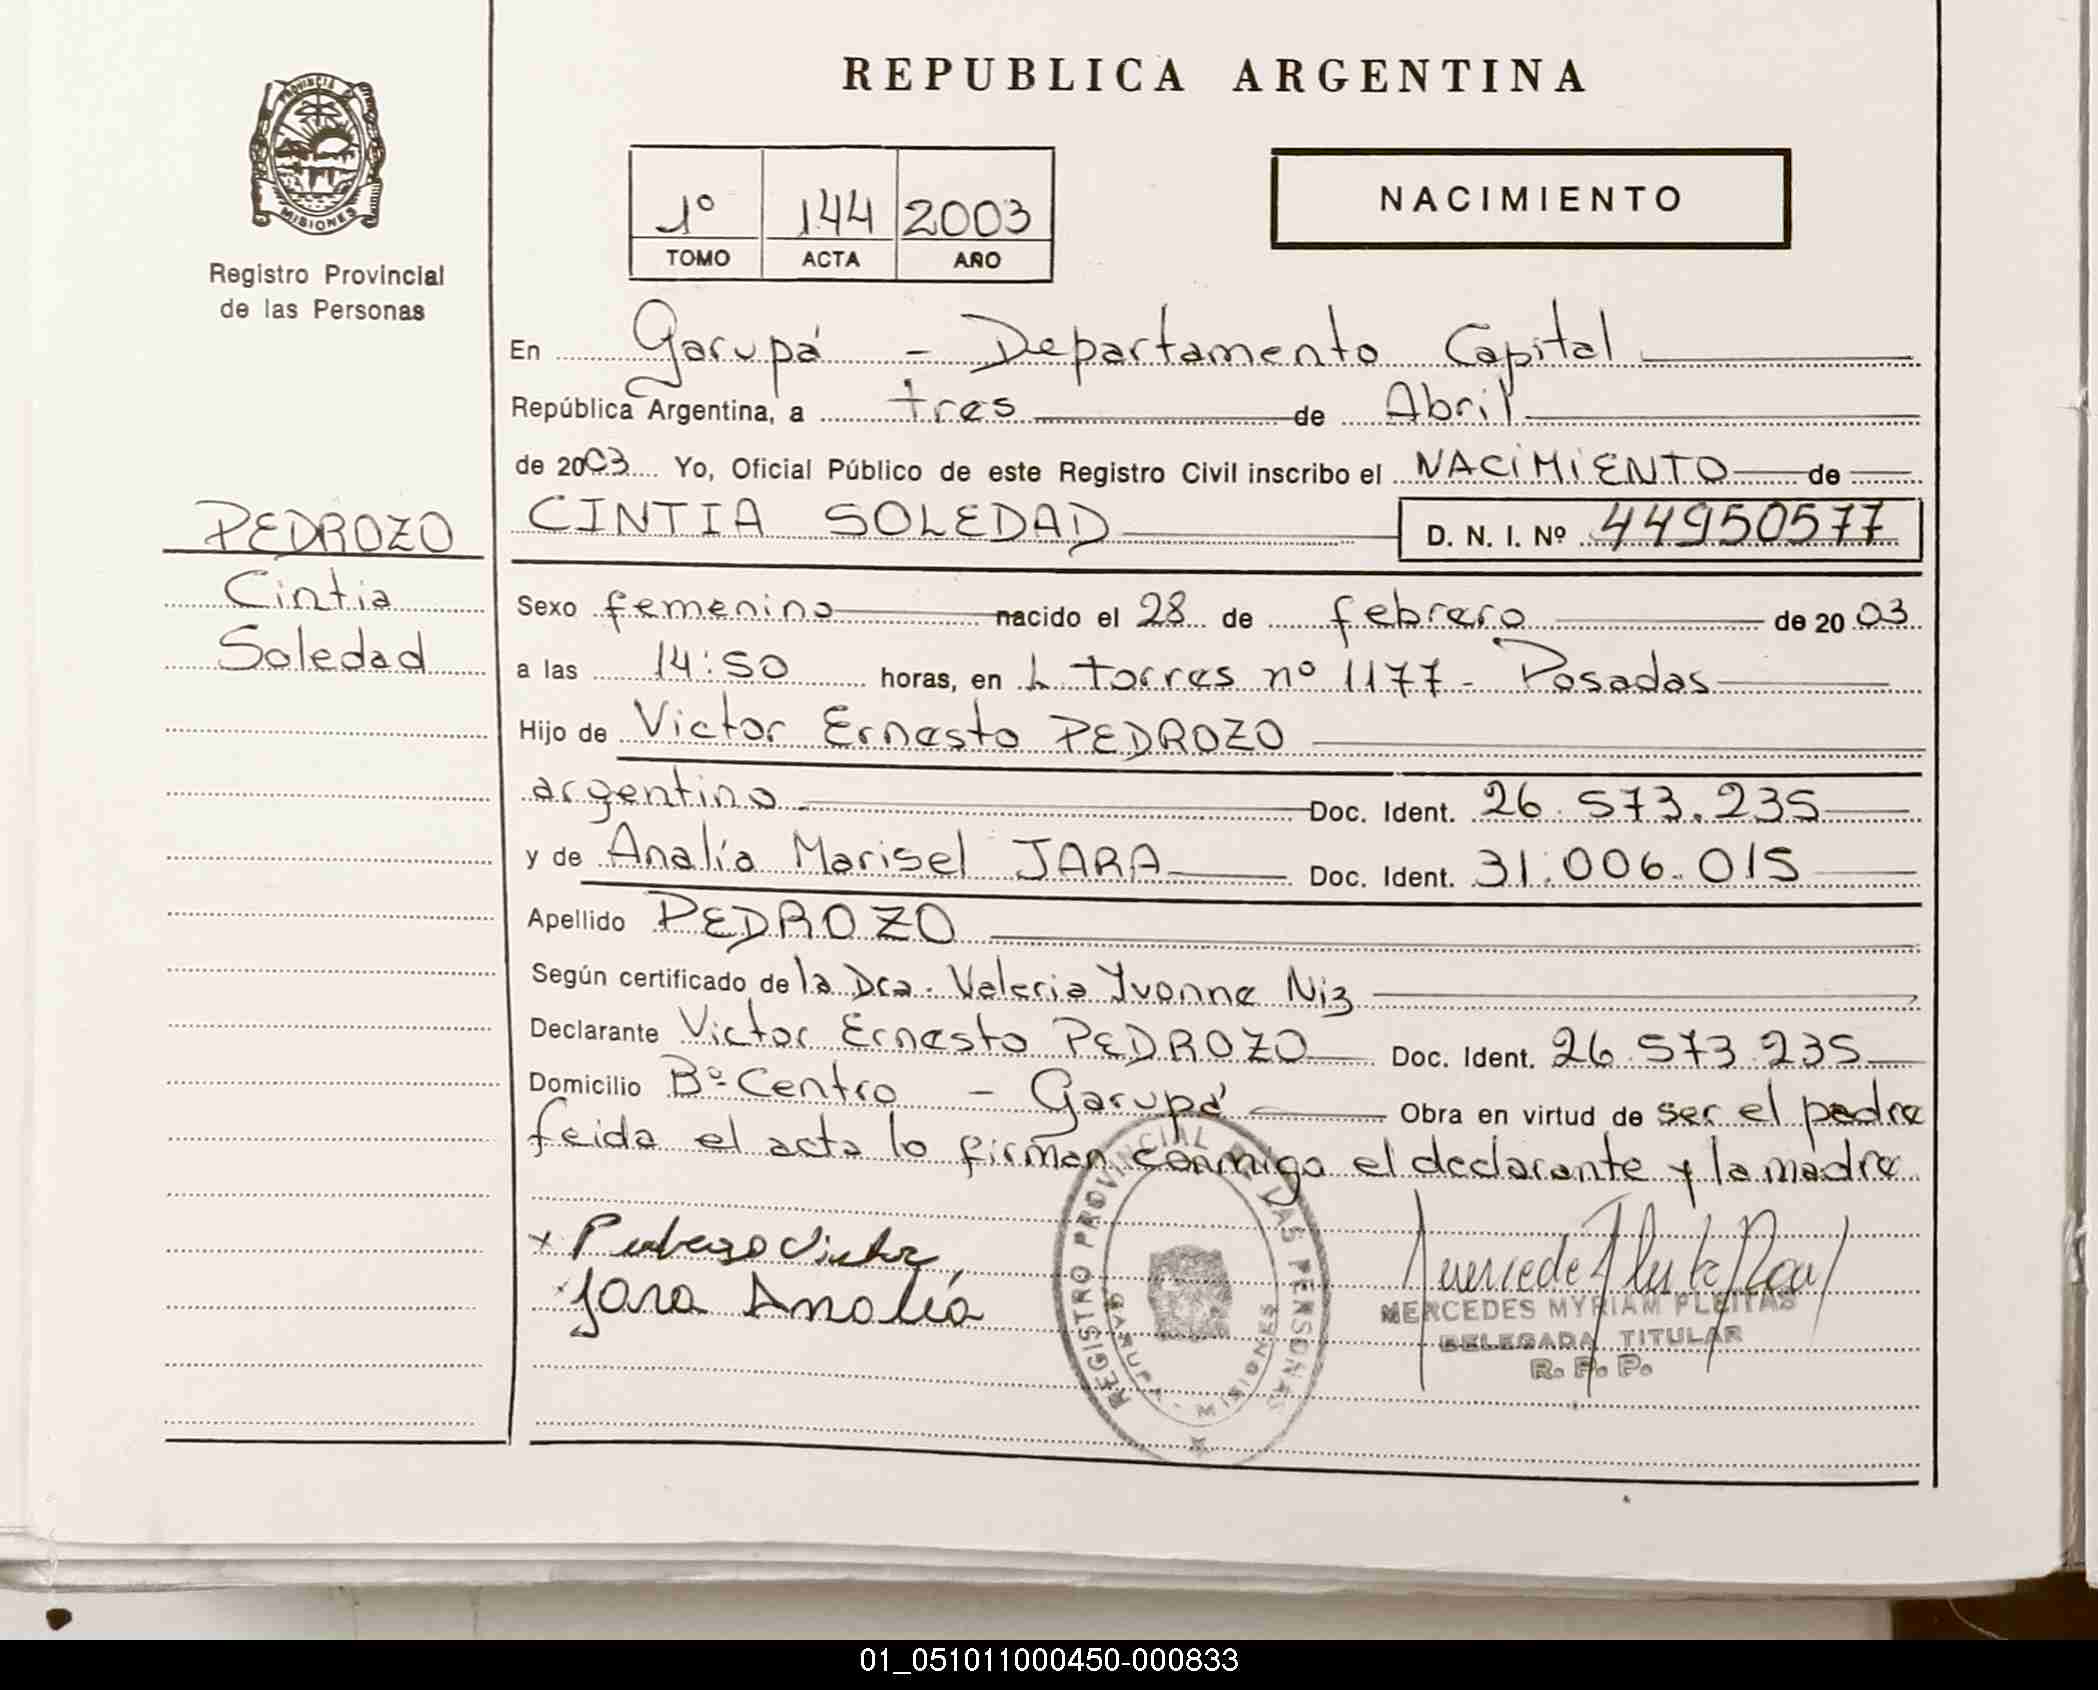 REPUBLICA ARGENTINA
PROVINCIA DE
MISIONES
Registro Provincial
de las Personas
1º 144 2003
TOMO ACTA AÑO
NACIMIENTO
En Garupá - Departamento Capital
República Argentina, a tres de Abril
de 2003 Yo, Oficial Público de este Registro Civil inscribo el NACIMIENTO de
PEDROZO
Cintia
Soledad
CINTIA SOLEDAD D. N. I. Nº 44950577
Sexo femenino nacido el 28 de febrero de 2003
a las 14:50 horas, en L. Torres nº 1177 - Posadas
Hijo de Victor Ernesto PEDROZO
argentino Doc. Ident. 26.573.235
y de Analía Marisel JARA Doc. Ident. 31.006.015
Apellido PEDROZO
Según certificado de la Dra. Valeria Yvonne Niz
Declarante Victor Ernesto PEDROZO Doc. Ident. 26.573.235
Domicilio Bº Centro - Garupá Obra en virtud de ser el padre
feida el acta lo firman conmigo el declarante y la madre
x Pedrozo Victor
Jara Analía
REGISTRO PROVINCIAL DE LAS PERSONAS
GARUPA - MISIONES
MERCEDES MYRIAM FLEITAS
DELEGADA TITULAR
R. P. P.
01_051011000450-000833